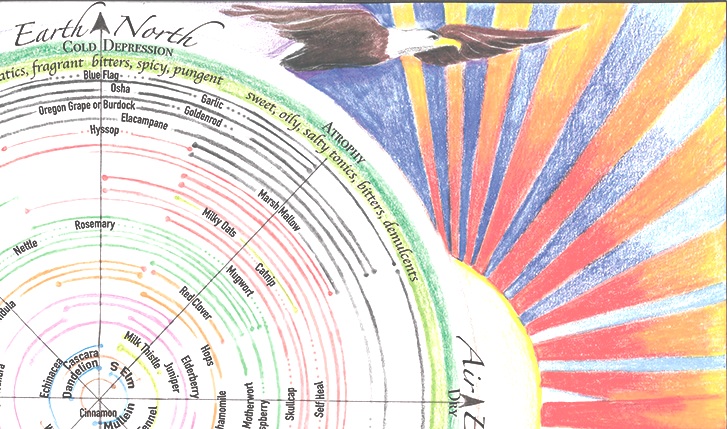 Earth North
COLD DEPRESSION
fragrant bitters, spicy, pungent
sweet, oily, salty tonics, bitters, demulcents
ATROPHY
Blue Flag
Osha
Garlic
Oregon Grape or Burdock
Goldenrod
Elacampane
Hyssop
Marsh Mallow
Milky Oats
Rosemary
Nettle
Catnip
Mugwort
Red Clover
Hops
Milk Thistle
Elderberry
Juniper
Cascara
S Elm
Dandelion
Echinacea
Cinnamon
Mullein
Motherwort
Skullcap
Self Heal
Air
DRY